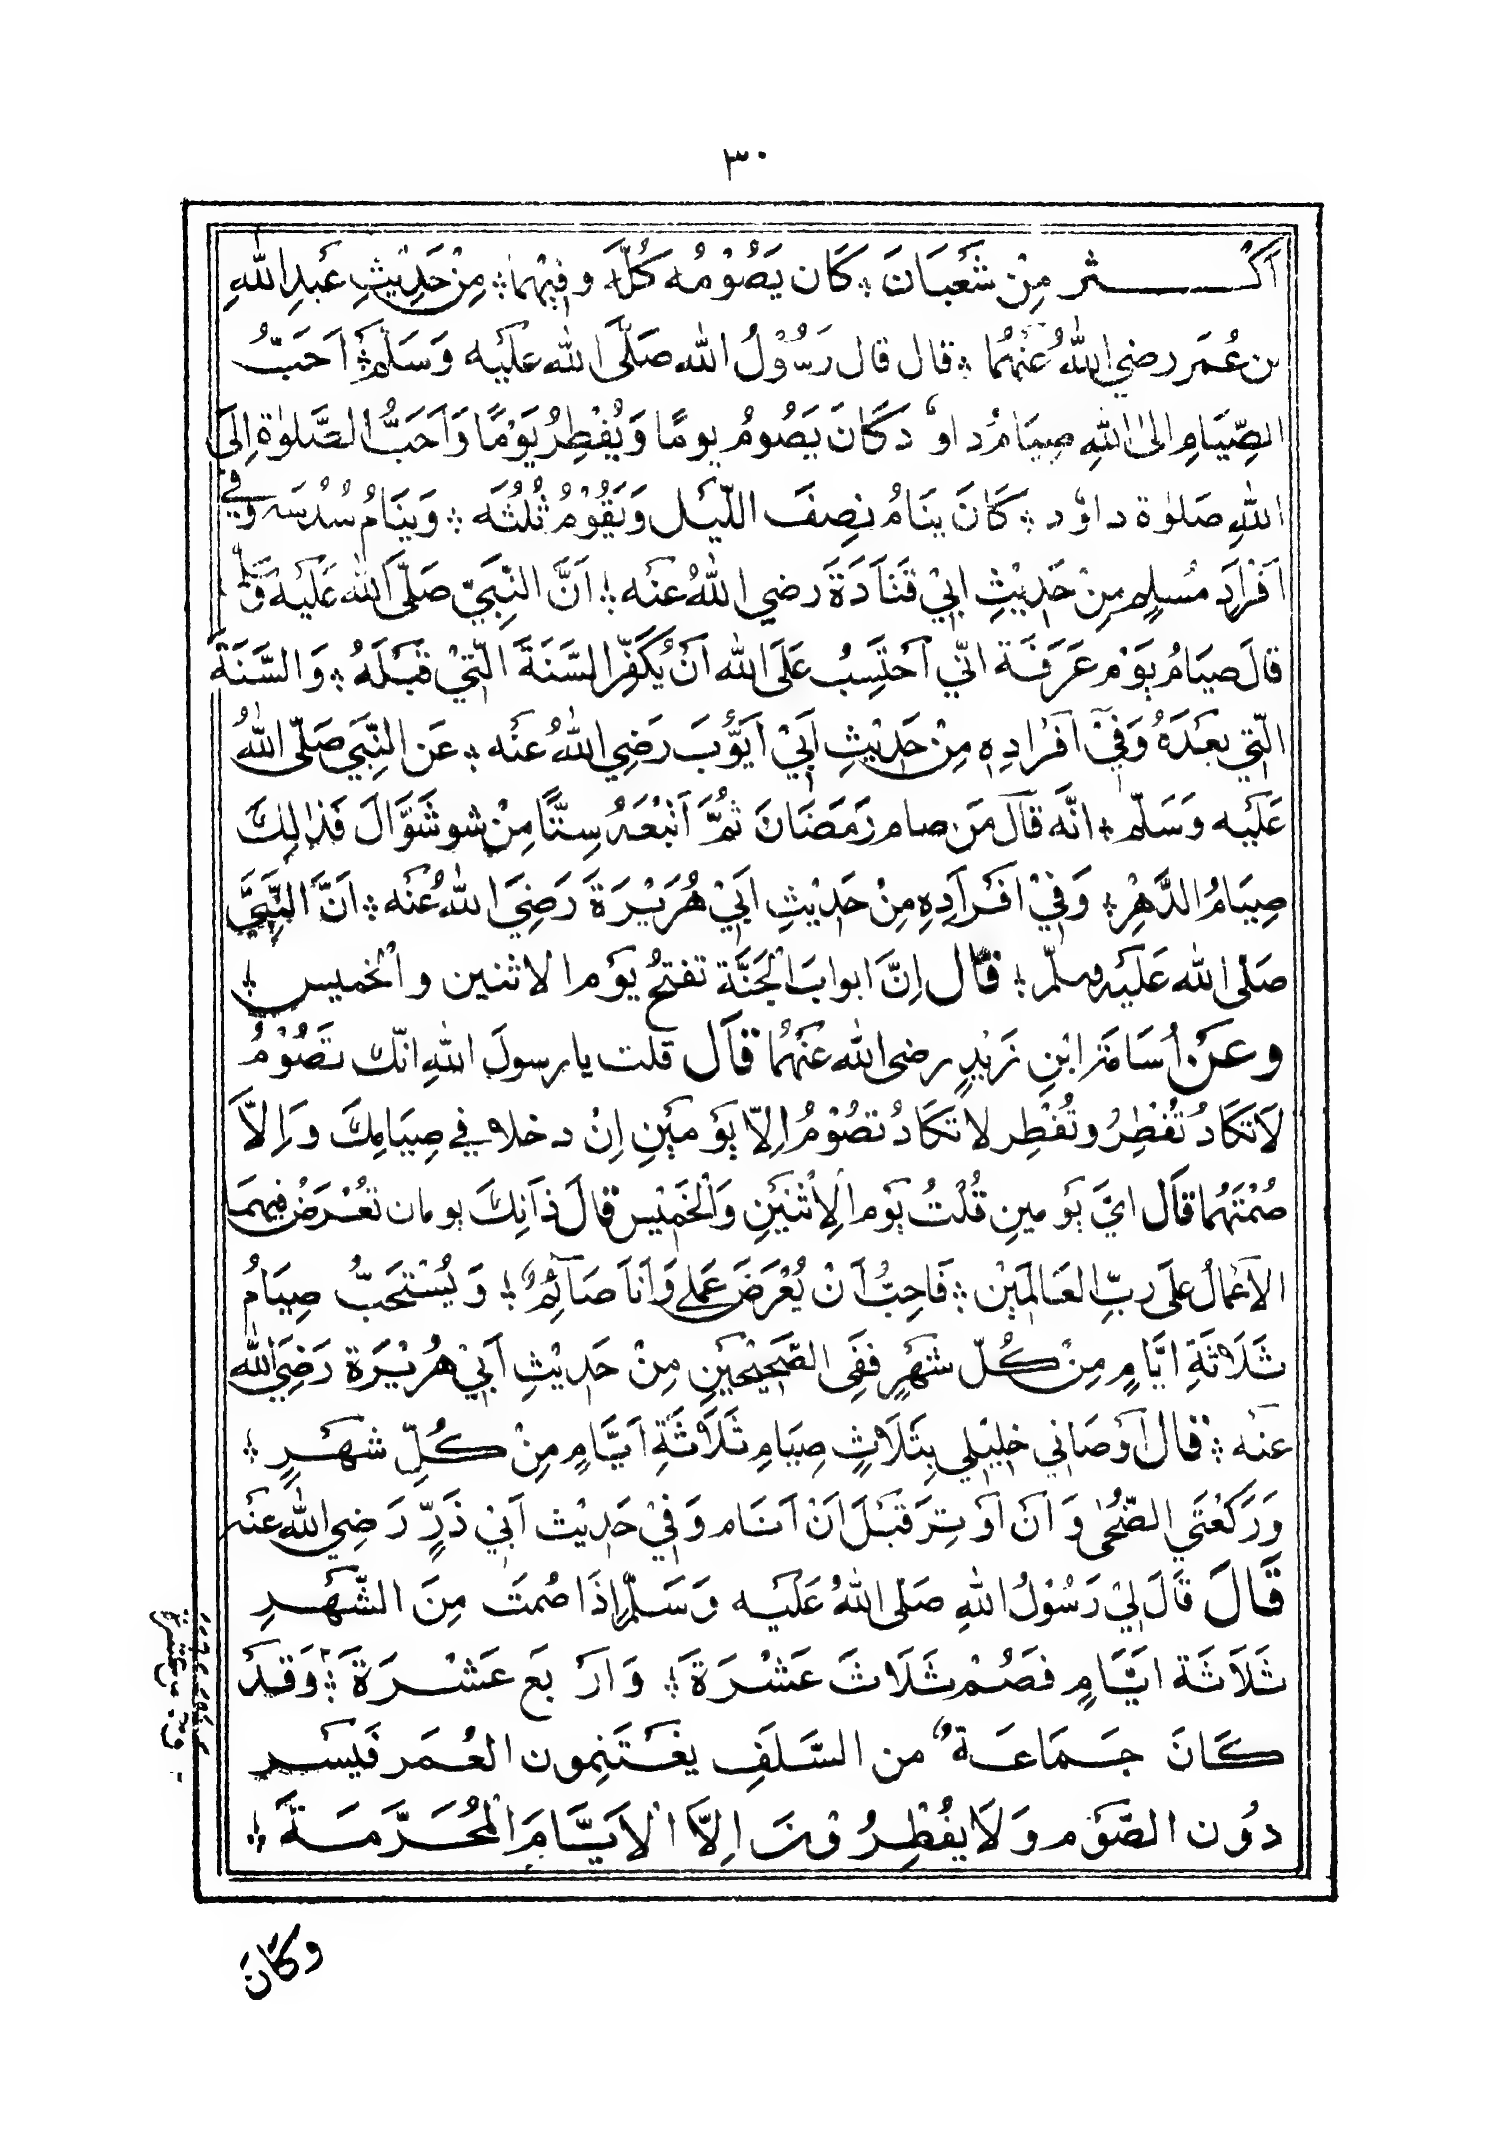 ٣٠
اَكْثر مِنْ شَعْبَانَ كَان يَصُوْمُه كُلَّه وفيْهمَا مِنْ حَدِيْثِ عَبدِ اللهِ
بن عُمَر رضي اللهُ عَنْهُما قال قال رَسُوْلُ الله صَلّى الله عَلَيه وَسَلّم اَحَبُّ
الصِّيَامِ الى اللهِ صِيَامُ داوُد كَانَ يَصُومُ يومًا وَيُفْطِرُ يَوْمًا وَاَحَبُّ الصَّلوٰةِ اِلَى
اللهِ صَلوٰة داوُد كَانَ يَنَامُ نِصفَ اللّيَل وَيَقُوْمُ ثُلُثَه وَيَنَامُ سُدُسَه وَفي
اَفْرَادِ مُسْلِمٍ مِنْ حَدِيْثِ ابِيْ قَتَادَةَ رضي اللهُ عَنْه اَنَّ النَّبِيّ صَلّى الله عَلَيْهِ وَسَلّم
قالَ صِيَامُ يَوْم عَرَفَة انّي اَحْتَسِبُ عَلَى الله اَنْ يُكَفِّر السَّنَةَ الّتِيْ قَبْلَهُ وَالسَّنَةَ
الّتِي بعْدَهُ وَفِيْ اَفْرَادِهِ مِنْ حَدِيْثِ اَبِيْ اَيّوُبَ رَضِي اللهُ عَنْه عَن النَّبِيَ صَلّى اللهُ
عَلَيْه وَسَلّم انَّه قَالَ مَن صام رَمَضَانَ ثُمَّ اَتْبَعَهُ سِتًّا مِنْ شو شَوَّالَ فَذالِكَ
صِيَامُ الدَّهْرِ وَفِيْ افْرَادِهِ مِنْ حَدِيْثِ اَبِيْ هُرَيْرَةَ رَضِيَ اللهُ عَنْه اَنَّ النَّبِيَّ
صَلّى الله عَلَيْه وسلّم قَال اِنَّ ابوابَ الْجَنَّة تفتحُ يَوْم الاثنين والْخميس
وعَنْ اُسَامَة ابْنِ زَيْدٍ رضى الله عَنْهُمَا قَال قلت يا رسولَ اللهِ انّك تصُوْمُ
لَا تَكَادُ تُفْطِرُ وتُفْطِر لا تَكَادُ تصُوْمُ اِلّا يَوْمَيْنِ اِنْ دخلا في صِيَامِكَ وَاِلَّا
صُمْتَهُما قَال ايَّ يَوْمينِ قُلْتُ يَوْم الِاثْنَيْنِ وَالْخَمِيْسِ قَالَ ذَانِكَ يومان تُعْرَضُ فِيهمَا
الاَعْمَالُ عَلى رَبِّ العَالَمِيْن فَاَحِبُّ اَنْ يُعْرَضَ عَمَلي وَاَنَا صَائِمٌ وَيُسْتَحَبُّ صِيَامُ
ثَلَاثَةِ ايَّامٍ مِنْ كُلّ شهْرٍ فَفِى الصَّحِيْحَيْنِ مِنْ حَدِيْثِ اَبِيْ هُرَيْرَة رَضِيَ الله
عنْه قال اَوْصَانِي خلِيْلِي بِثَلَاثٍ صِيَامِ ثَلَاثَةِ اَيَّامٍ مِنْ كُلِّ شهْرٍ
وَرَكْعَتَيِ الضُّحٰى وَاَنْ اَوتِرَ قَبْلَ اَنْ اَنَام وَفِيْ حَدِيْث اَبِيْ ذَرٍّ رَضِي الله عنْه
قَالَ قَالَ لِيْ رَسُوْلُ اللهِ صَلّى اللهُ عَلَيْه وَسَلّم اِذَا صُمتَ مِنَ الشَّهْرِ
ثَلَاثَة ايَّامٍ فصُمْ ثَلَاثَ عَشْرَةَ وَارْبَع عَشْرَةَ وَقَدْ
كَانَ جَمَاعَةٌ من السَّلَفِ يغْتَنِمون العُمَر فَيسر
دوُن الصَّوْم وَلَا يفُطِرُوْنَ اِلَّا الْاَيَّامَ الْمُحَرَّمَةَ
وكَانَ